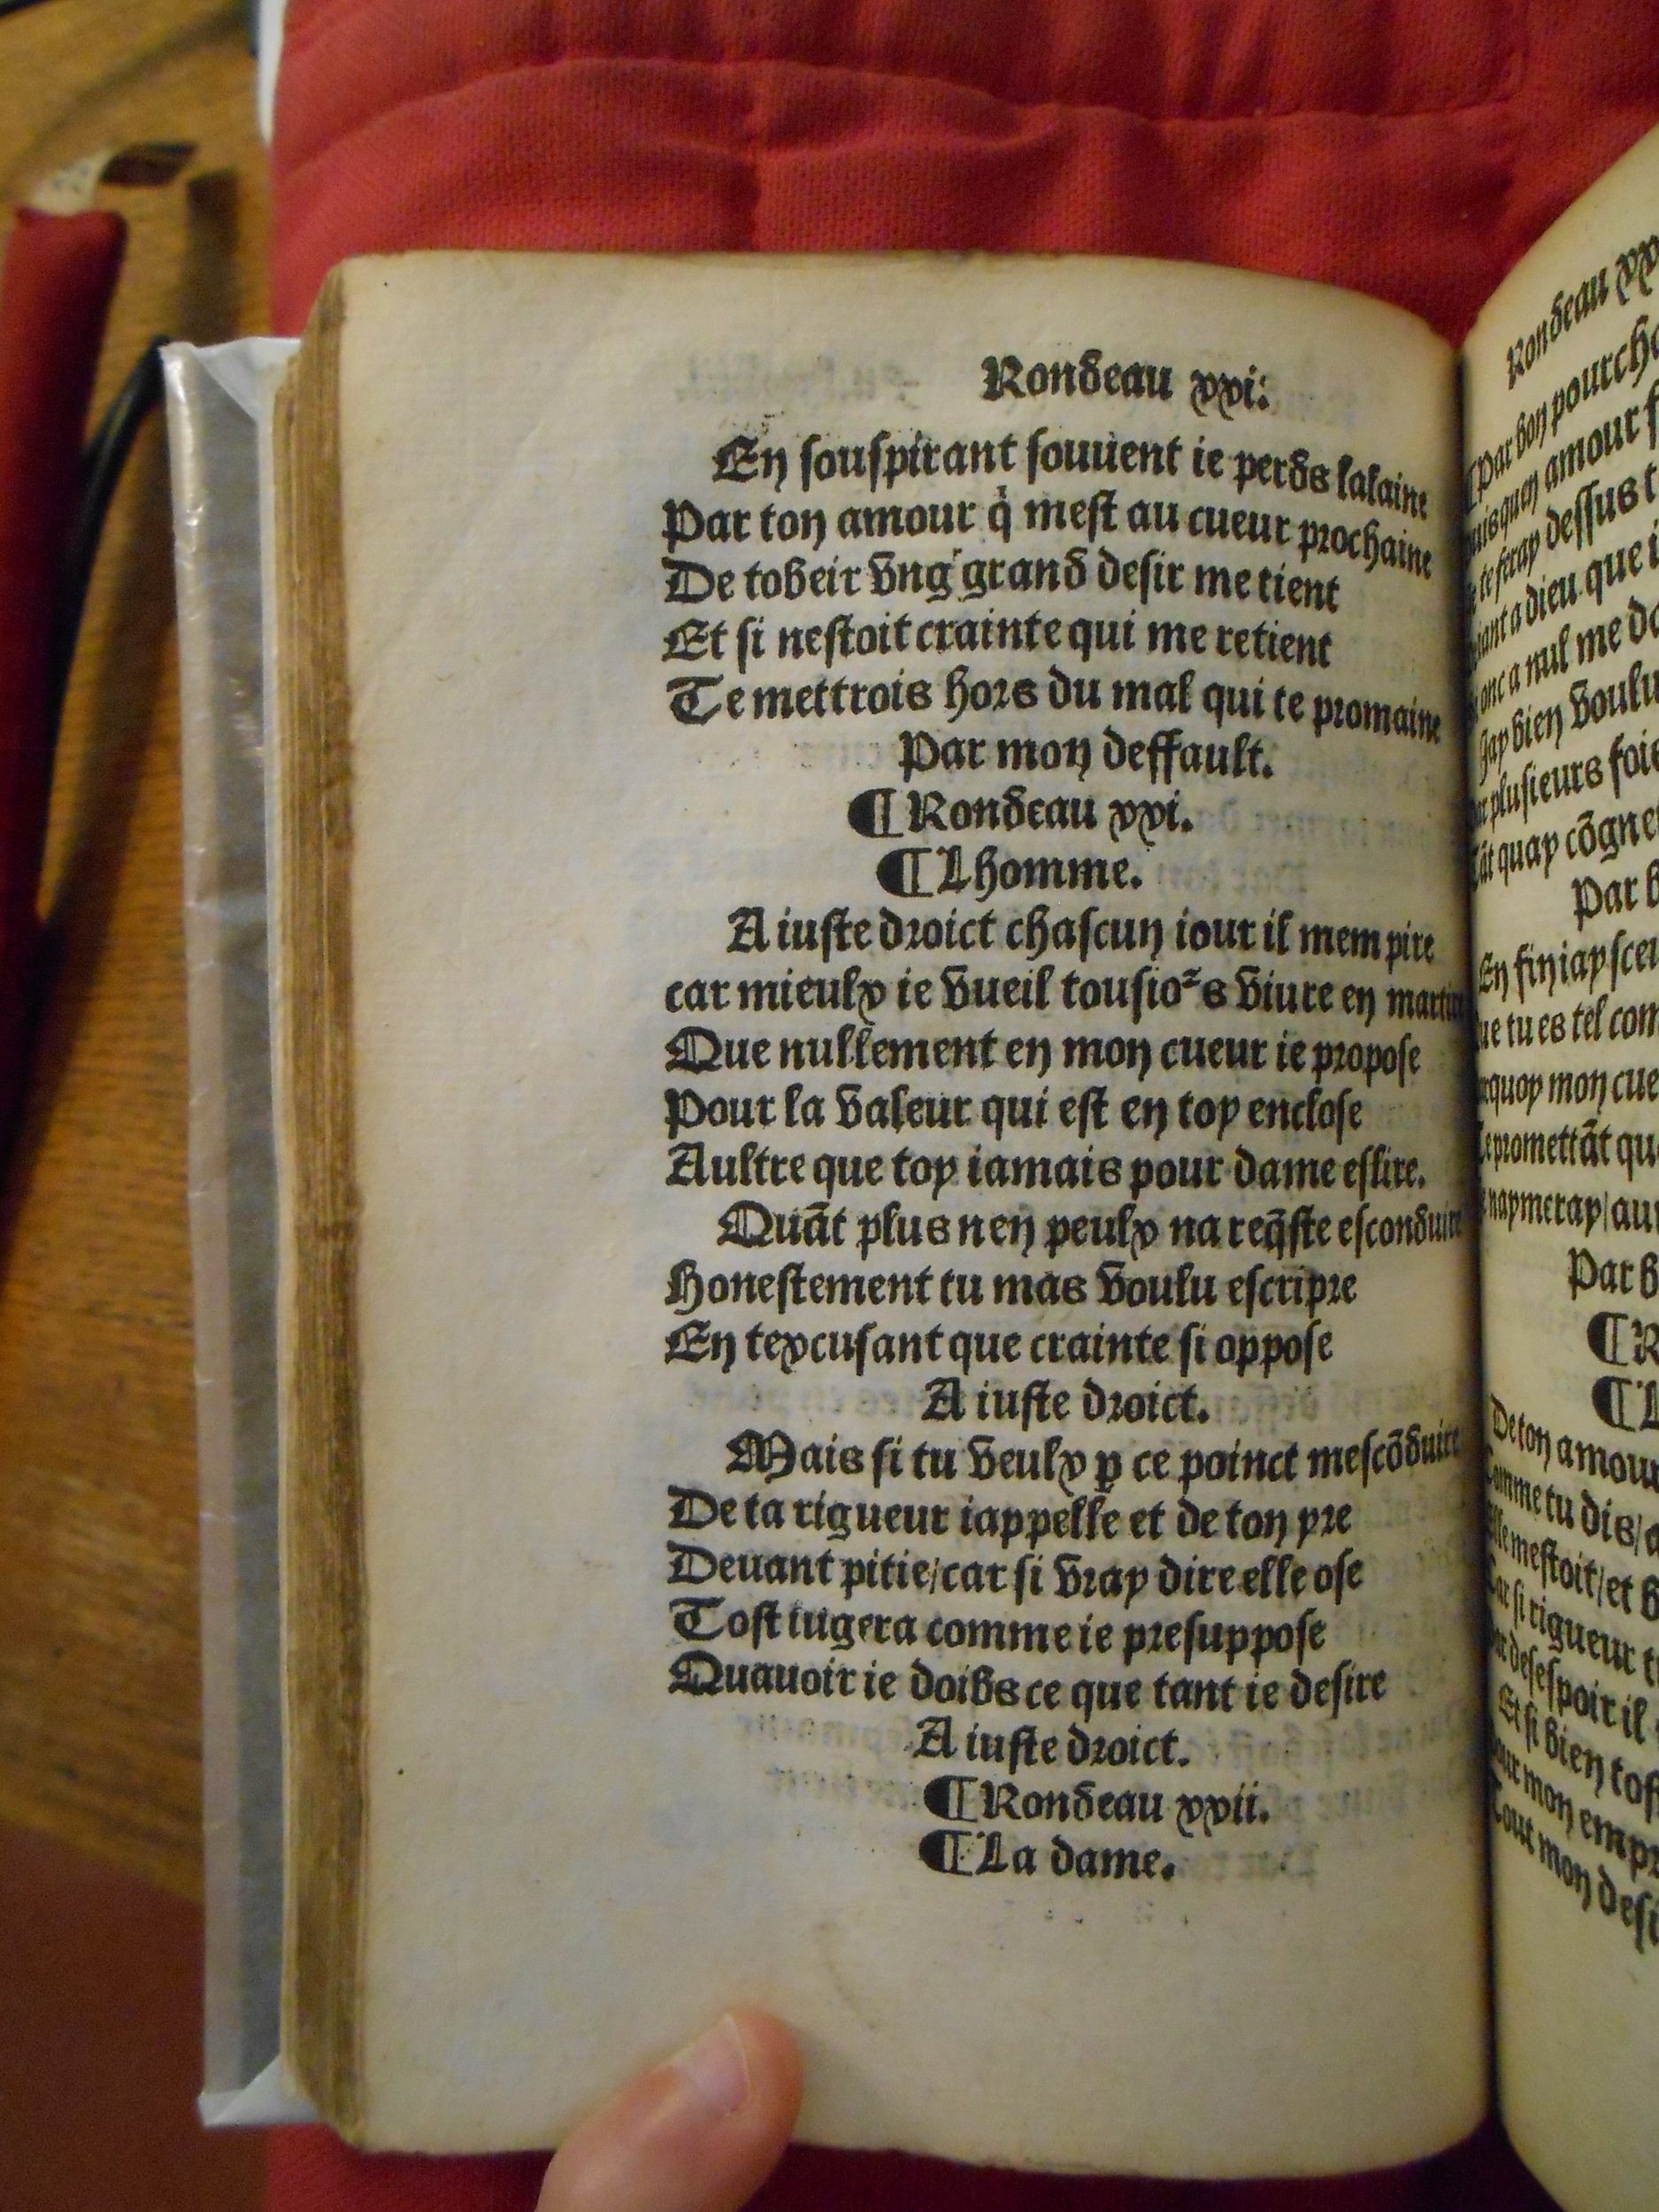 Rondeau xxi:
En souspirant souuent ie perds lalaine
Par ton amour q̇ mest au cueur prochaine
De tobeir vng grand desir me tient
Et si nestoit crainte qui me retient
Te mettrois hors du mal qui te promaine
Par mon deffault.
¶Rondeau xxi.
¶Lhomme.
A iuste droict chascun iour il mem pire
car mieulx ie vueil tousioꝛs viure en martire
Que nullement en mon cueur ie propose
Pour la valeur qui est en toy enclose
Aultre que toy iamais pour dame eslire.
Quāt plus nen peulx na req̄ste esconduire
Honestement tu mas voulu escripre
En texcusant que crainte si oppose
A iuste droict.
Mais si tu veulx ꝑ ce poinct mescōduire
De ta rigueur iappelle et de ton yre
Deuant pitie/car si vray dire elle ose
Tost iugera comme ie presuppose
Quauoir ie doibs ce que tant ie desire
A iuste droict.
¶Rondeau xxii.
¶La dame.
Rondeau
Par bon
amour
dessus
a dieu que
a nul me
bien voulu
plusieurs
quay cōgneu
Par
En fin iay
tu es tel
mon
promettāt
Par
De ton amour
tu dis/
mestoit/et
si rigueur
desespoir il
Et si bien tost
mon
Tout mon